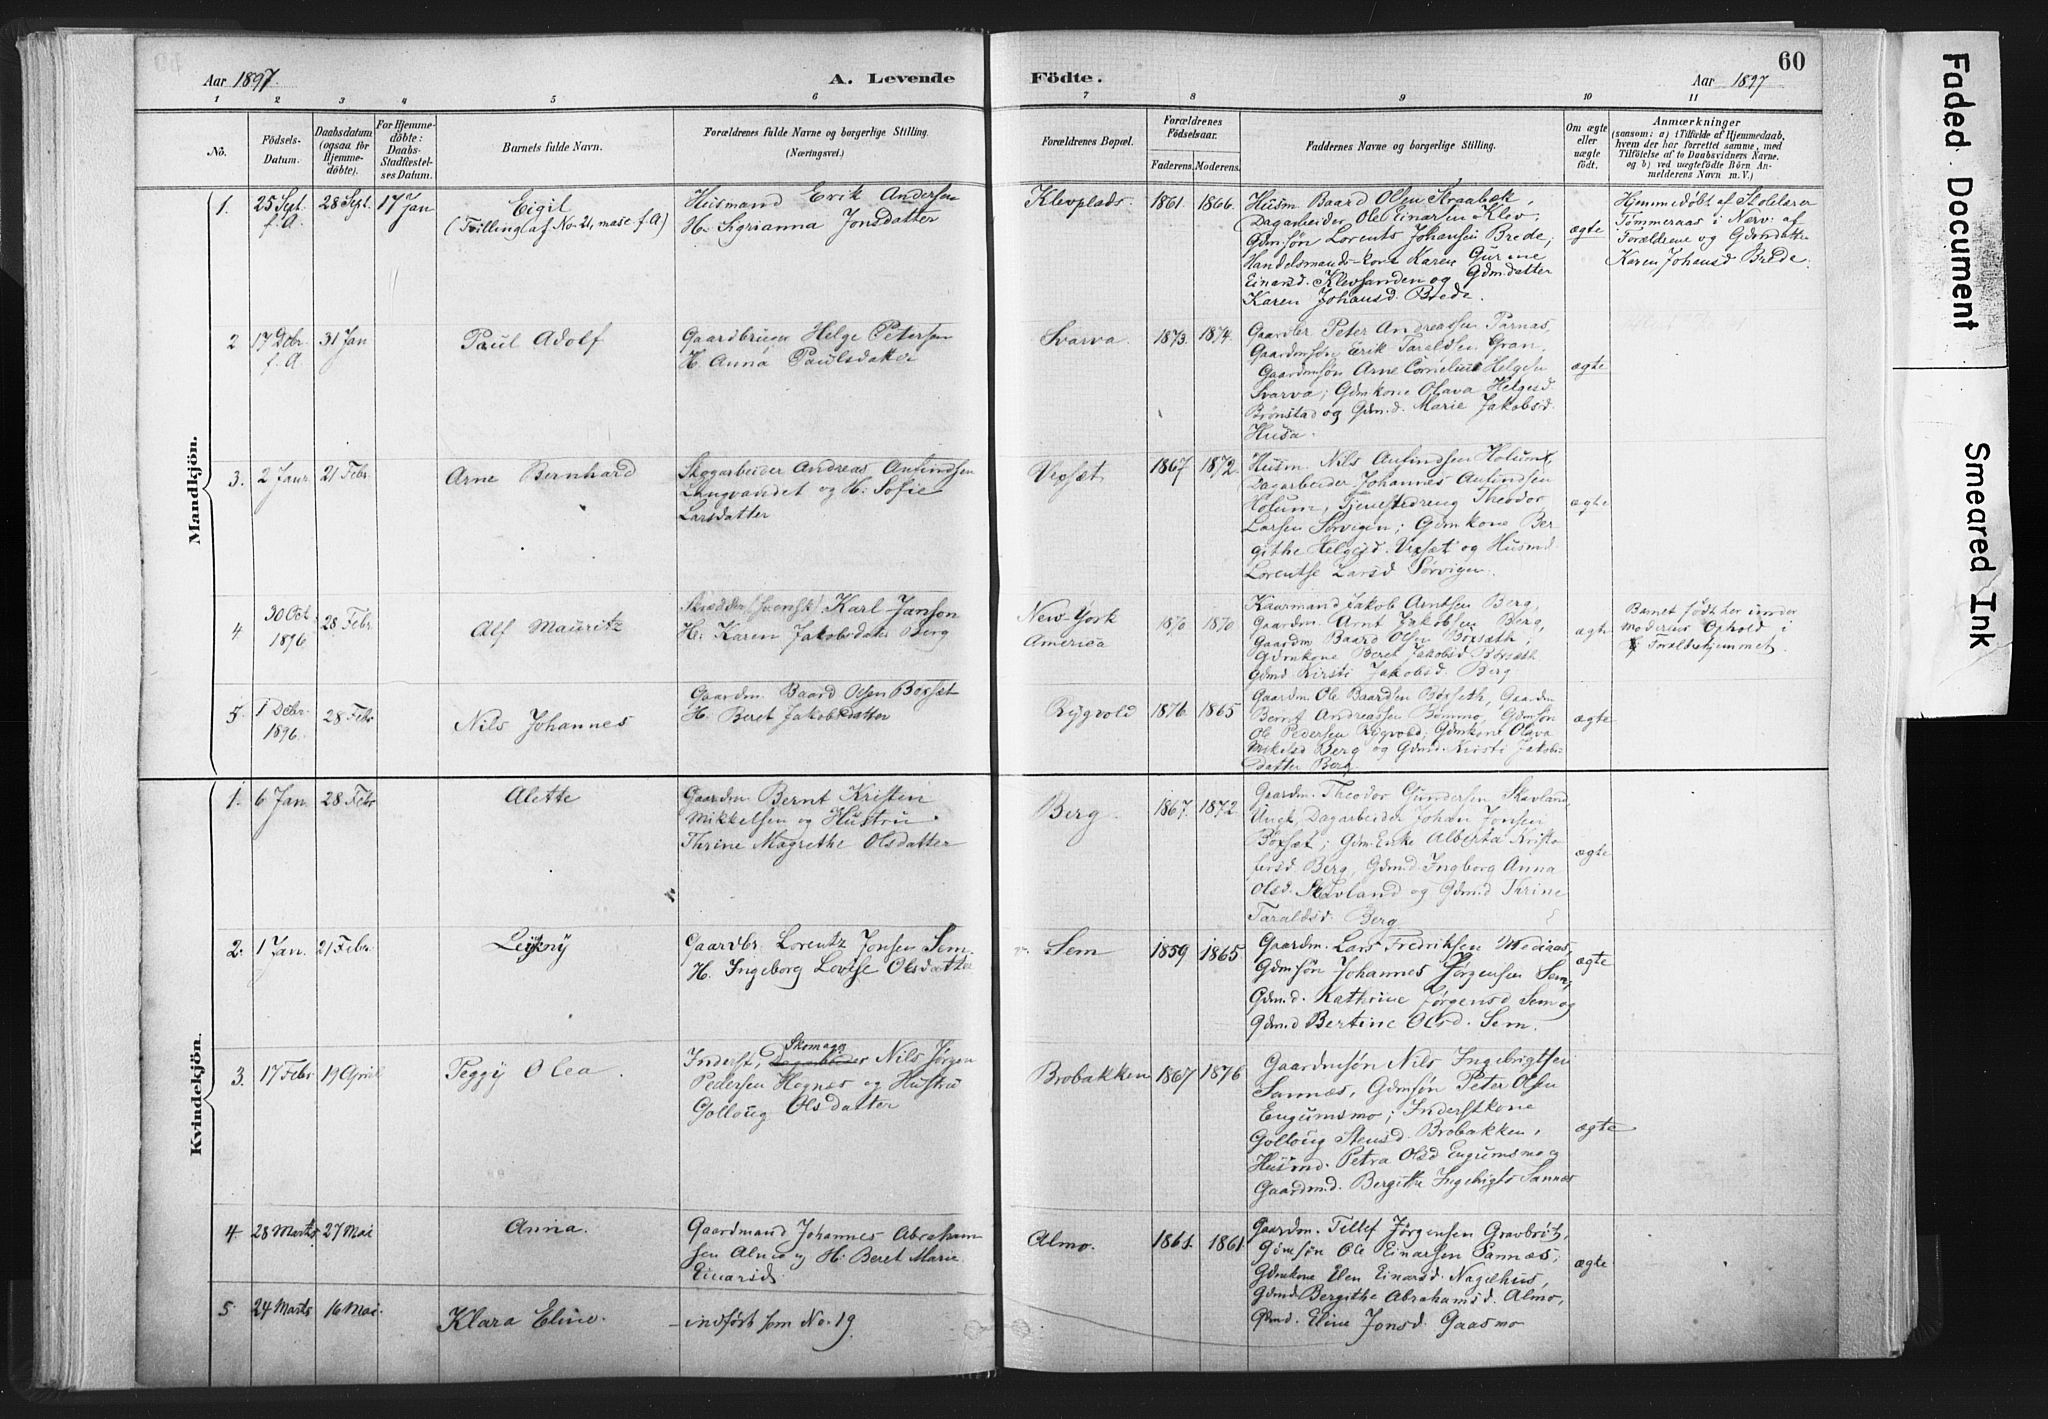 Aar 1897.
A. Levende
Födte.
Aar 1897
60
1 2 3 4 5 6 7 8 9 10 11
No.
Födsels-
Datum.
Daabsdatum
(ogsaa for
Hjemme-
döbte).
For Hjemme-
döbte:
Daabs-
Stadfæstel-
ses Datum.
Barnets fulde Navn.
Forældrenes fulde Navne og borgerlige Stilling.
(Næringsvei.)
Forældrenes Bopæl.
Forældrenes
Födselsaar.
Faderens. Moderens.
Faddernes Navne og borgerlige Stilling.
Om ægte
eller
uægte
födt.
Anmærkninger
(saasom: a) i Tilfælde af Hjemmedaab,
hvem der har forrettet samme, med
Tilföielse af to Daabsvidners Navne.
og b) ved uægtefödte Börn An-
melderens Navn m. V.)
Mandkjön.
1. 25 Sept. f.A. 28 Sept. 17 Jan
Eigil
(Tvilling af No. 21, masc f. A)
Husmand Erik Andersen
H. Sigrianna Jonsdatter
Klevplads. 1861 1866
Husm Baard Olsen Straabæk,
Dagarbeider Ole Einarsen Klev,
Gdmsøn Lorents Johansen Brede,
Handelsmands-kone Karen Gurine
Einarsd. Klevsanden og Gdmdatter
Karen Johansd. Brede.
ægte
Hjemmedøbt af Skolelærer
Tømmeraas i Nærv: af
Forældrene og Gdmdatter
Karen Johansd Brede.
2 17 Debr. f. A 31 Jan
Paul Adolf
Gaardbruger Helge Petersen
H. Anna Paulsdatter
Svarva. 1873. 1874.
Gaardbr. Peter Andreassen Parnas,
Gaardmsøn Erik Taraldsen Gran.
Gaardmsøn Arne Cornelius Helgesen
Svarva; Gdmkone Olava Helgesd.
Brønstad og Gdm.d. Marie Jakobsd.
Husa.
ægte
3. 2 Janr. 21 Febr.
Arne Bernhard
Skogarbeider Andreas Anfindsen
Langvandet og H: Sofie
Larsdatter
Vexsæt 1867 1872.
Husm. Nils Anfindsen Holum,
Dagarbeider Johannes Anfindsen
Holum, Tjenestedreng Theodor
Larsen Sørvigen; Gdmkone Ber
githe Helgesd. Vexsæt og Husmd.
Lorentse Larsd Sørvigen.
ægte
4 30 Oct. 1896 28 Febr.
Alf Mauritz
Skrædder (svensk) Karl Janson
H: Karen Jakobsdatter Berg
New-York
America
1870 1870
Kaarmand Jakob Arntsen Berg,
Gaardm. Arnt Jakobsen Berg,
Gaardm Baard Olsen Boxsæth;
Gdmkone Beret Jakobsd. Boxsæth
Gdmd Kirsti Jakobsd. Berg
ægte
Barnet født her under
Moderens Ophold i
Foræld­rehjemmet.
5. 1 Debr. 1896. 28 Febr
Nils Johannes
Gaardm. Baard Olsen Boxsæt
H. Beret Jakobsdatter
Rygvold 1876 1865
Gaardm Ole Baardsen Boxseth, Gaardm
Bernt Andreassen Bømmo, Gdmsøn
Ole Pedersen Rygvold; Gdmkone Olava
Mikelsd Berg og Gdmd. Kirsti Jakobs-
datter Berg.
ægte
Kvindekjön.
1. 6 Jan. 28 Febr
Alette
Gaardm. Bernt Kristen
Mikkelsen og Hustru
Thrine Magrethe Olsdatter
Berg. 1867. 1872.
Gaardm. Theodor Gundersen Skavland
Ungk. Dagarbeider Johan Jonsen
Boxsæt; Gdm.Enke Alberta Kristo
fersd Berg, Gdmd Ingborg Anna
Olsd. Skavland og Gdmd Thrine
Taraldsd Berg
ægte
2. 1 Jan. 21 Febr.
Leikny
Gaardbr. Lorentz Jonsen Sem
H. Ingeborg Lovise Olsdatter
Sem 1859 1865
Gaardm. Lars Fredriksen Mediaas,
Gdmsøn Johannes Jørgensen Sem,
Gdmd. Kathrine Jørgensd Sem og
Gdmd Bertine Olsd. Sem.
ægte
3. 17 Febr 19 April
Peggy Olea.
Inderst, Skomager Nils Jørgen
Pedersen Hegnes og Hustru
Golloug Olsdatter
Brobakken 1867 1876
Gaardmsøn Nils Ingebrigtsen
Sannæs, Gdmsøn Peter Olsen
Engumsmo; Inderstkone
Golloug Stensd. Brobakken,
Husmd. Petra Olsd Engumsmo og
Gaardmd. Bergitte Ingebrigts Sannæs
ægte
4 28 Marts 27 Mai
Anna.
Gaardmand Johannes Abraham
sen Almo og H: Beret Marie
Einarsd.
Almo. 1861. 1861
Gaardm. Tellef Jørgensen Gravbrøt,
Gdmsøn Ole Einarsen Sannæs;
Gdmkone Elen Einarsd. Nagelhus,
Gdmd Bergithe Abrahamsd. Almo,
Gdmd. Eline Jonsd. Gaasmo
ægte
5. 24 Marts 16 Mai
Klara Eline.
-indført som No. 19.
Faded Document
Smeared Ink